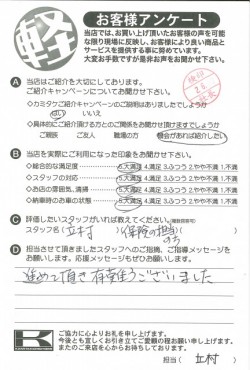 軽
お客様アンケート
当店では、お買い上げ頂いたお客様の声を可能
な限り現場に反映し、お客様により良い商品と
サービスを提供する事に努めています。
大変お手数ですが是非お声をお聞かせ下さい。
A 当店はご紹介を大切にしております。
ご紹介キャンペーンについてお聞かせ下さい。
◇カミタケご紹介キャンペーンのご説明はありましたでしょうか
はい いいえ
◇具体的にご紹介頂ける方とのご関係をお聞かせ頂けますでしょうか
ご親族 ご友人 職場の方 機会があれば紹介したい
B 当店を実際にご利用になった印象をお聞かせ下さい。
◇総合的な満足度 5.大満足 4.満足 3.ふつう 2.やや不満 1.不満
◇スタッフの対応 5.大満足 4.満足 3.ふつう 2.やや不満 1.不満
◇お店の雰囲気、清掃 5.大満足 4.満足 3.ふつう 2.やや不満 1.不満
◇納車時のお車の状態 5.大満足 4.満足 3.ふつう 2.やや不満 1.不満
C 評価したいスタッフがいれば教えてください。(複数回答可)
スタッフ名( 立村 )(保険の担当)
D 担当させて頂きましたスタッフへのご指摘、ご指導メッセージを
お願いします。応援メッセージもぜひお願いします。
進めて頂き有難うございました
K
ご協力に心よりお礼を申し上げます。
今後とも宜しくお引き立てご愛顧の程お願い申し上げます。
またのご来店を心からお待ちしております。
担当( 立村 )